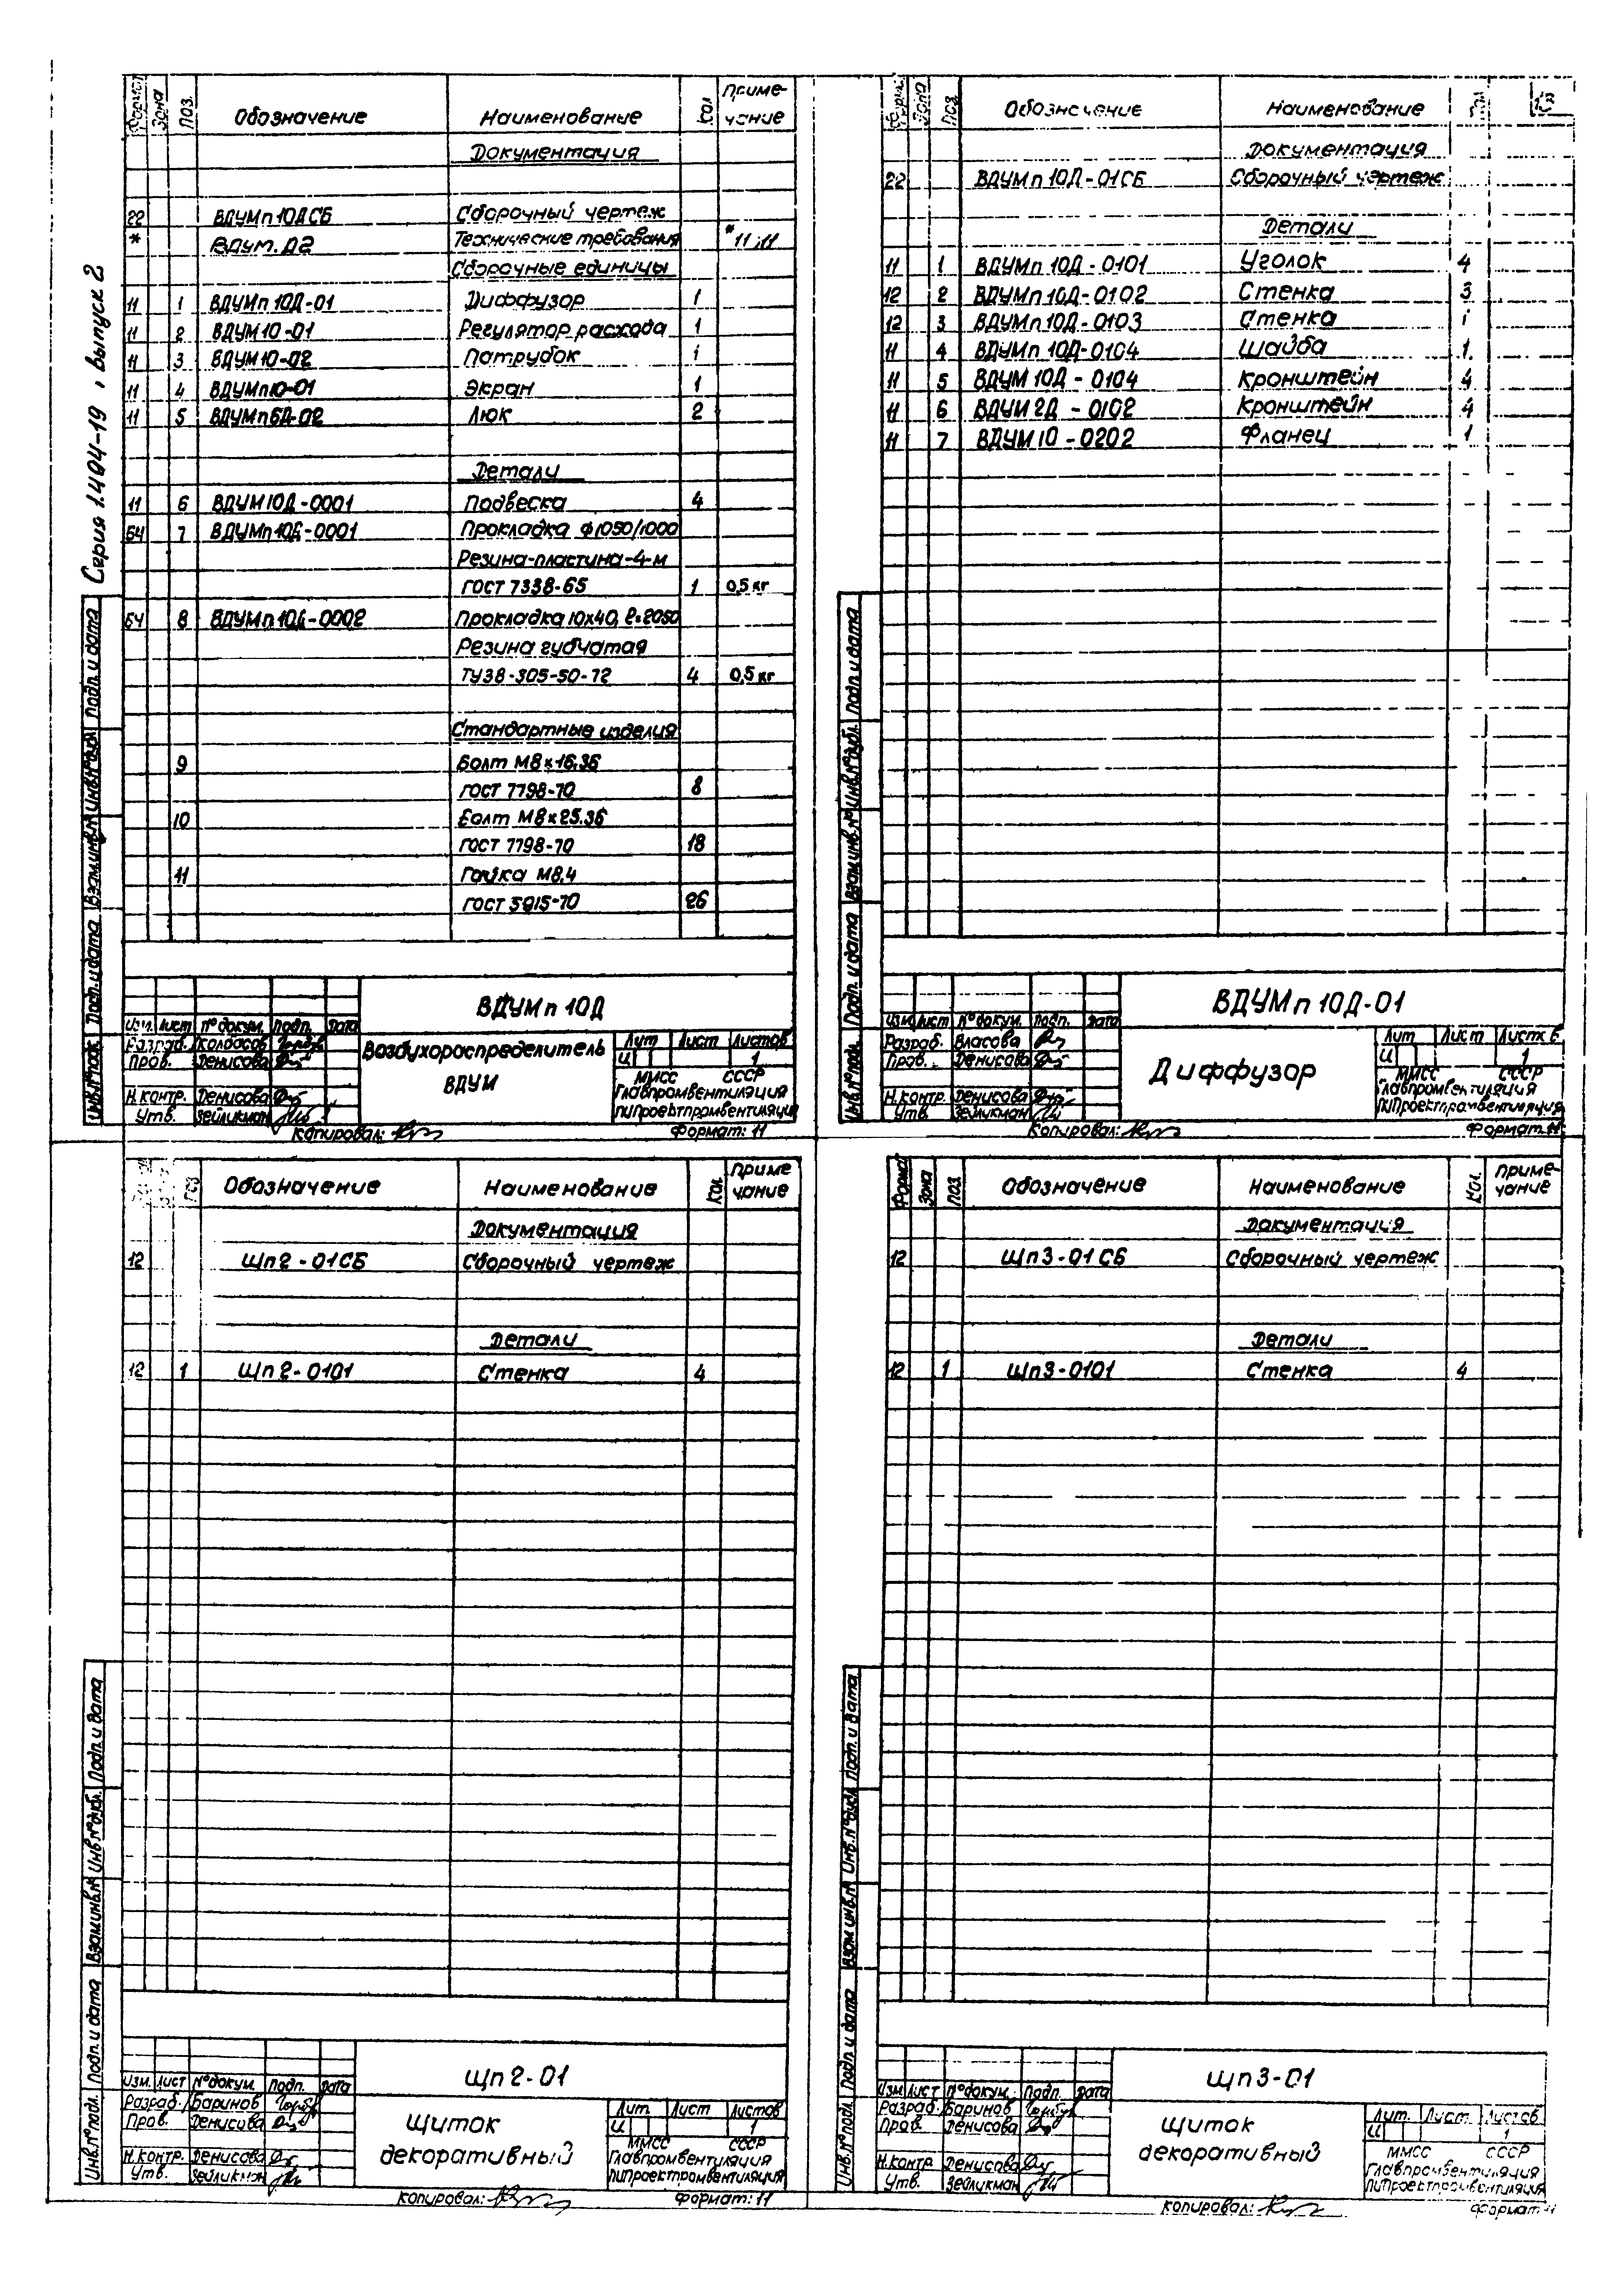 Серия 1.494-19, выпуск 2
Формат Зона Поз. Обозначение Наименование Кол. Примечание
Документация
22 ВДУМп 10ДСБ Сборочный чертеж
* ВДУМ.Д2 Технические требования *11;11
Сборочные единицы
11 1 ВДУМп 10Д-01 Диффузор 1
11 2 ВДУМ 10-01 Регулятор расхода 1
11 3 ВДУМ 10-02 Патрубок 1
11 4 ВДУМп10-01 Экран 1
11 5 ВДУМп6Д-02 Люк 2
Детали
11 6 ВДУМ10Д-0001 Подвеска 4
БЧ 7 ВДУМп10Д-0001 Прокладка ф1050/1000
Резина-пластина-4-м
ГОСТ 7338-65 1 0,5 кг
БЧ 8 ВДУМп 10Д-0002 Прокладка 10х40, ℓ=2050
Резина губчатая
ТУ38-305-50-72 4 0,5 кг
Стандартные изделия
9 Болт М8х16.36
ГОСТ 7798-70 8
10 Болт М8х25.36
ГОСТ 7798-70 18
11 Гайка М8.4
ГОСТ 5915-70 26
Подп. и дата
Инв.№ дубл.
Взам.инв.№
Подп. и дата
Инв.№ подл.
ВДУМп 10Д
Изм. Лист № докум. Подп. Дата
Разраб. Колбасов
Пров. Денисова
Н.контр. Денисова
Утв. Зейликман
Воздухораспределитель
ВДУМ
Лит Лист Листов
И 1
ММСС СССР
Главпромвентиляция
ПИПроектпромвентиляция
Копировал: Формат: 11
Формат Зона Поз. Обозначение Наименование Кол. 13
Документация
22 ВДУМп 10Д-01СБ Сборочный чертеж
Детали
11 1 ВДУМп 10Д-0101 Уголок 4
12 2 ВДУМп 10Д-0102 Стенка 3
12 3 ВДУМп 10Д-0103 Стенка 1
11 4 ВДУМп 10Д-0104 Шайба 1
11 5 ВДУМ 10Д-0104 Кронштейн 4
11 6 ВДУМ 2Д-0102 Кронштейн 4
11 7 ВДУМ 10-0202 Фланец 1
Подп. и дата
Инв.№ дубл.
Взам.инв.№
Подп. и дата
Инв.№ подл.
ВДУМп 10Д-01
Изм Лист № докум. Подп. Дата
Разраб. Власова
Пров. Денисова
Н.контр. Денисова
Утв. Зейликман
Диффузор
Лит Лист Листов
И 1
ММСС СССР
Главпромвентиляция
ПИПроектпромвентиляция
Копировал: Формат: 11
Поз Обозначение Наименование Кол. Примечание
Документация
12 Щп2-01СБ Сборочный чертеж
Детали
12 1 Щп2-0101 Стенка 4
Подп. и дата
Инв.№ дубл.
Взам.инв.№
Подп. и дата
Инв.№ подл.
Щп2-01
Изм. Лист № докум. Подп. Дата
Разраб. Баринов
Пров. Денисова
Н.контр. Денисова
Утв. Зейликман
Щиток
декоративный
Лит. Лист Листов
И 1
ММСС СССР
Главпромвентиляция
ПИПроектпромвентиляция
Копировал: Формат: 11
Формат Зона Поз Обозначение Наименование Кол. Примечание
Документация
12 Щп3-01СБ Сборочный чертеж
Детали
12 1 Щп3-0101 Стенка 4
Подп. и дата
Инв.№ дубл.
Взам.инв.№
Подп. и дата
Инв.№ подл.
Щп3-01
Изм Лист № докум. Подп. Дата
Разраб. Баринов
Пров. Денисова
Н.контр. Денисова
Утв. Зейликман
Щиток
декоративный
Лит. Лист Листов
И 1
ММСС СССР
Главпромвентиляция
ПИПроектпромвентиляция
Копировал: Формат 11